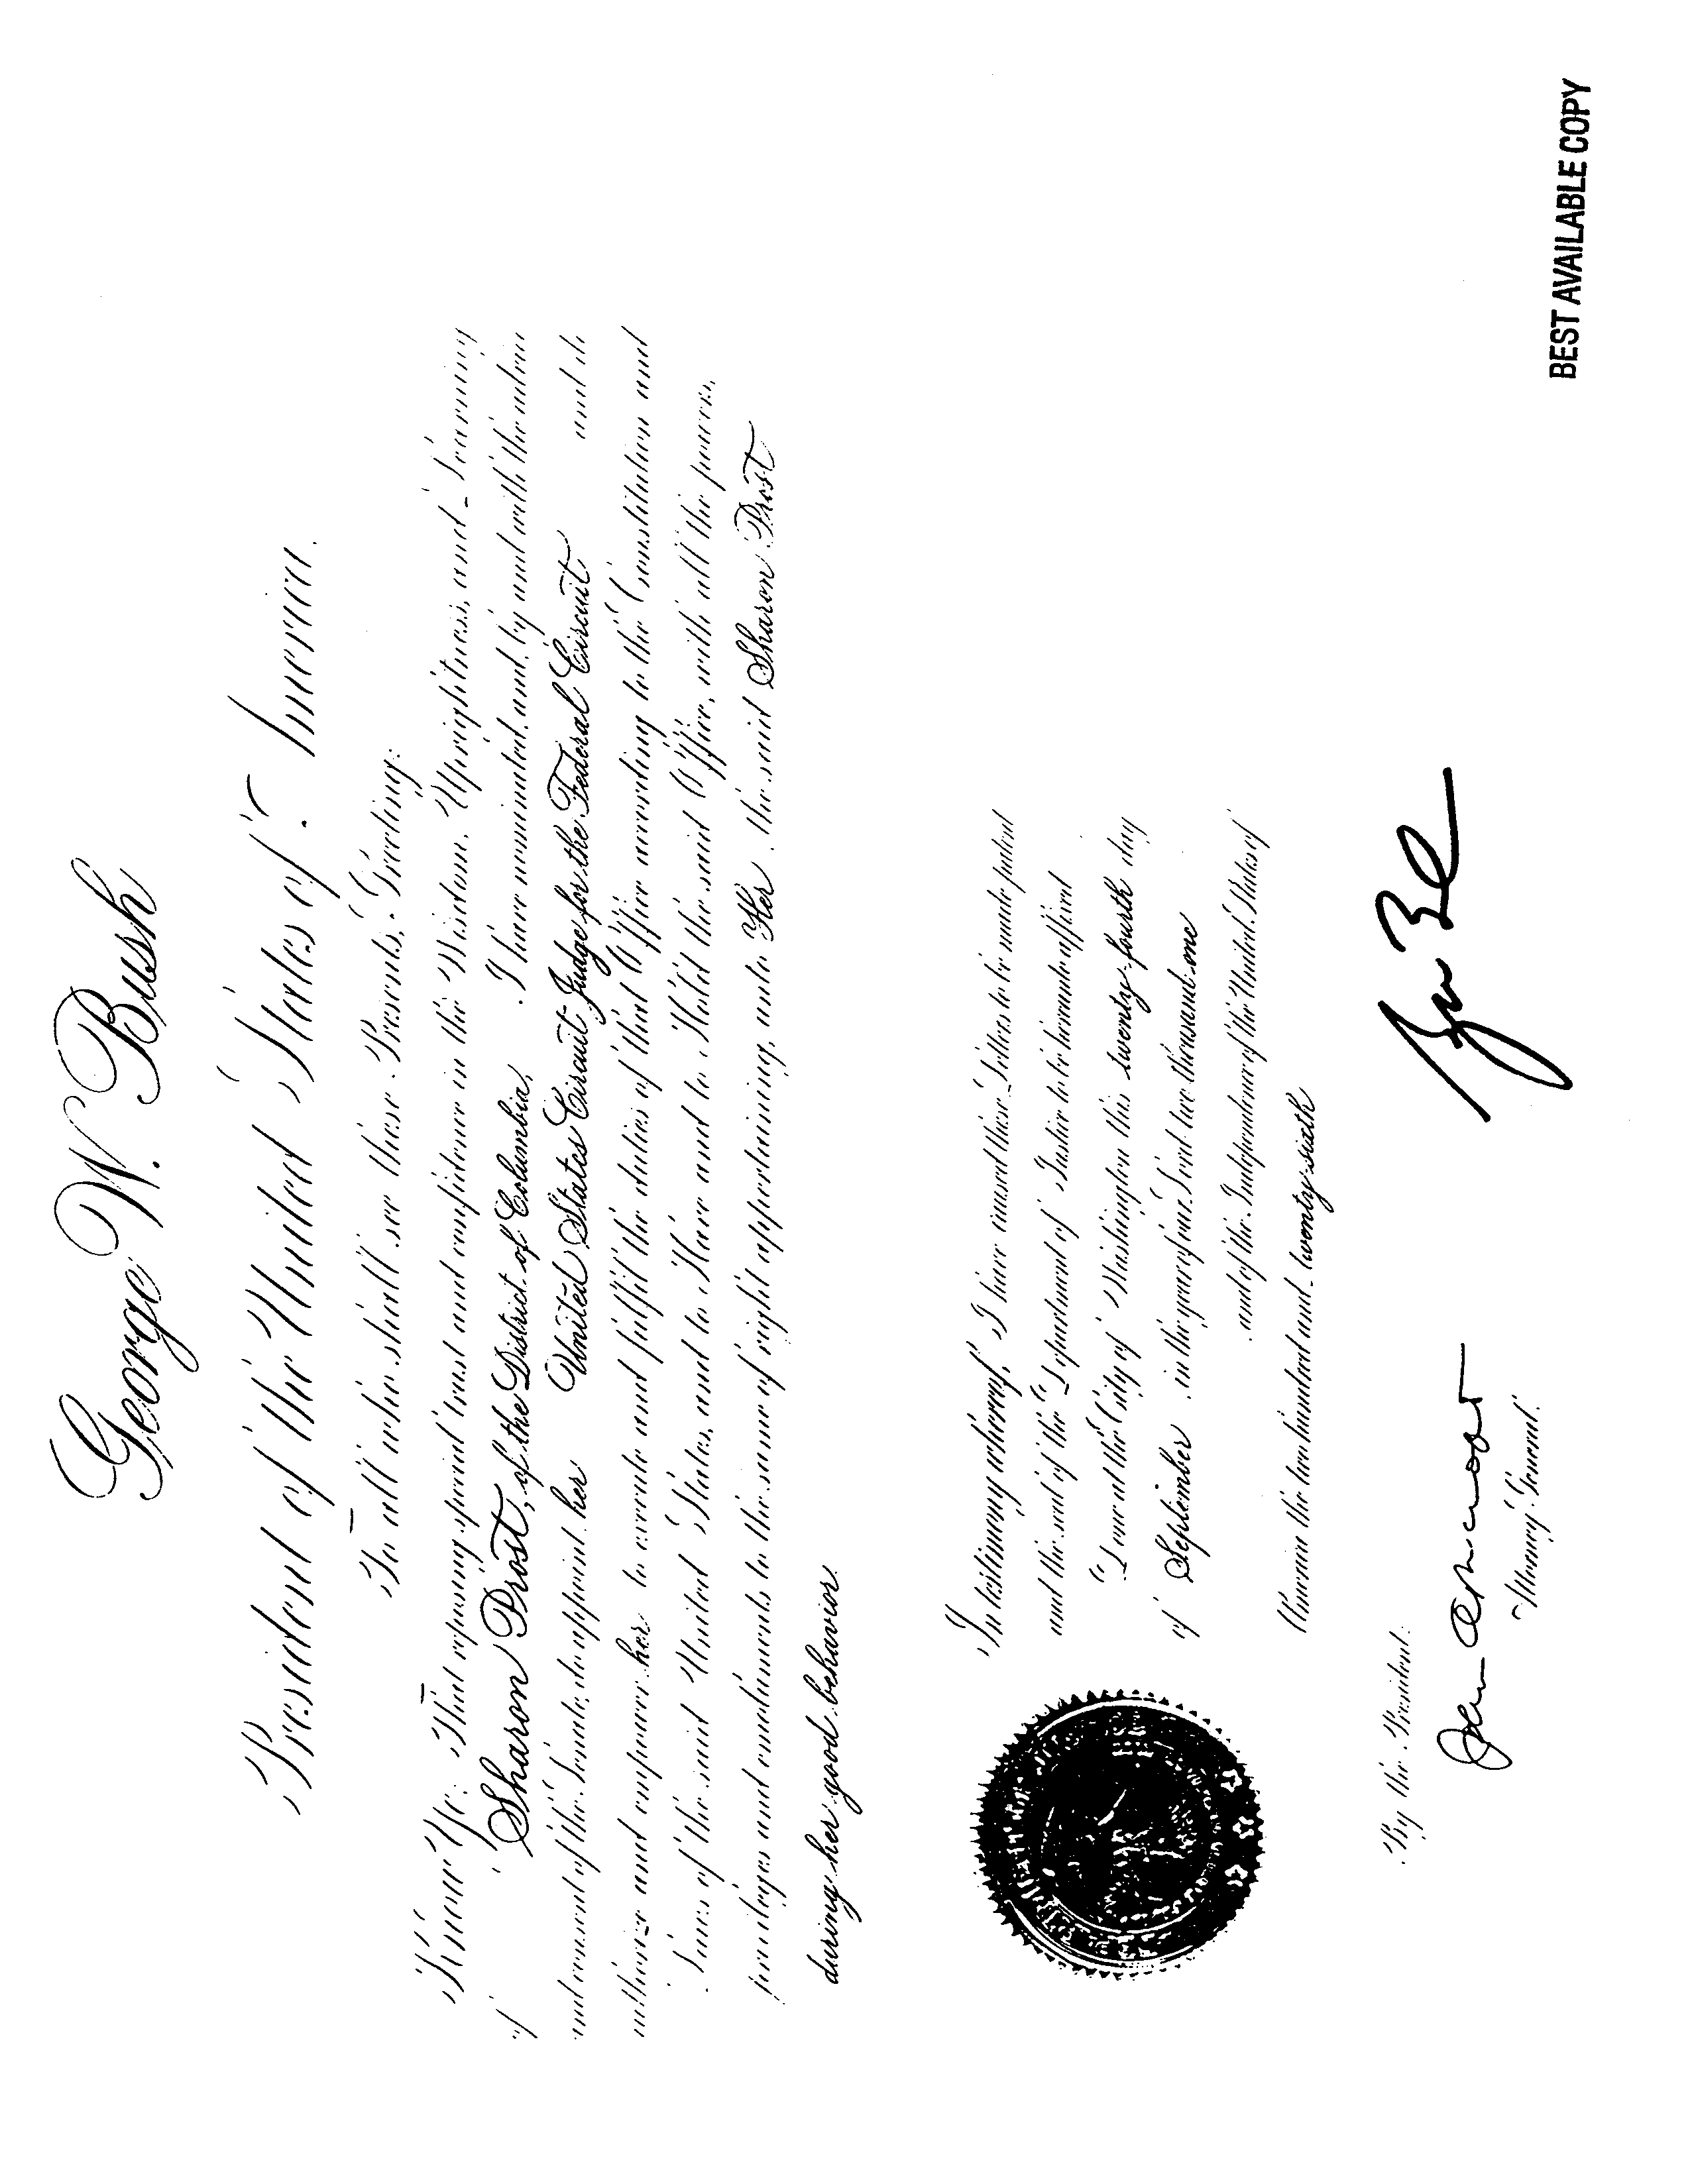 George W. Bush
President of the United States of America.
To all who shall see these Presents, Greeting:
Know Ye: That reposing special trust and confidence in the Wisdom, Uprightness, and Learning
of Sharon Prost, of the District of Columbia, I have nominated, and, by and with the advice
and consent of the Senate, do appoint her United States Circuit Judge for the Federal Circuit and do
authorize and empower her to execute and fulfil the duties of that Office according to the Constitution and
Laws of the said United States, and to Have and to Hold the said Office, with all the powers,
privileges and emoluments to the same of right appertaining, unto Her, the said Sharon Prost
during her good behavior.
In testimony whereof, I have caused these Letters to be made patent
and the seal of the Department of Justice to be hereunto affixed
Done at the City of Washington this twenty-fourth day
of September, in the year of our Lord two thousand one
and of the Independence of the United States of
America the two hundred and twenty-sixth
By the President:
John Ashcroft
Attorney General.
BEST AVAILABLE COPY